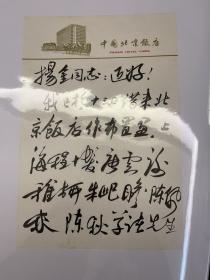 中國北京飯店
PEKING HOTEL · CHINA
揚金同志：近好！
我已於十二日從來北
京飯店作布置畫，上
海程十髮、唐雲、謝
稚柳、朱屺瞻、陳佩
秋、陳秋草諸先生